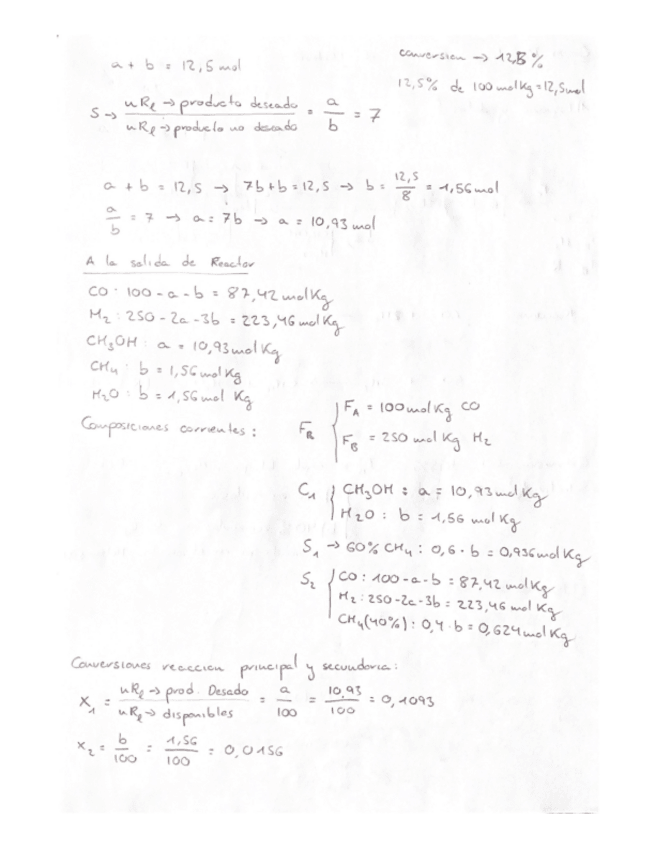 conversion → 12,5 %
a + b = 12,5 mol
12,5% de 100 molKg = 12,5 mol
S → nRl → producto deseado / nRl → producto no deseado = a/b = 7
a + b = 12,5 → 7b + b = 12,5 → b = 12,5/8 = 1,56 mol
a/b = 7 → a = 7b → a = 10,93 mol
A la salida de Reactor
CO : 100 - a - b = 87,42 molKg
H2 : 250 - 2a - 3b = 223,46 mol Kg
CH3OH : a = 10,93 mol Kg
CH4 : b = 1,56 mol Kg
H2O : b = 1,56 mol Kg
Composiciones corrientes :
FR { FA = 100 mol Kg CO
FB = 250 mol Kg H2
C1 { CH3OH : a = 10,93 mol Kg
H2O : b = 1,56 mol Kg
S1 → 60% CH4 : 0,6 · b = 0,936 mol Kg
S2 { CO : 100 - a - b = 87,42 mol Kg
H2 : 250 - 2a - 3b = 223,46 mol Kg
CH4 (40%) : 0,4 · b = 0,624 mol Kg
Conversiones reaccion principal y secundaria :
X1 = nRl → prod. Desado / nRl → disponibles = a/100 = 10,93/100 = 0,1093
X2 = b/100 = 1,56/100 = 0,0156